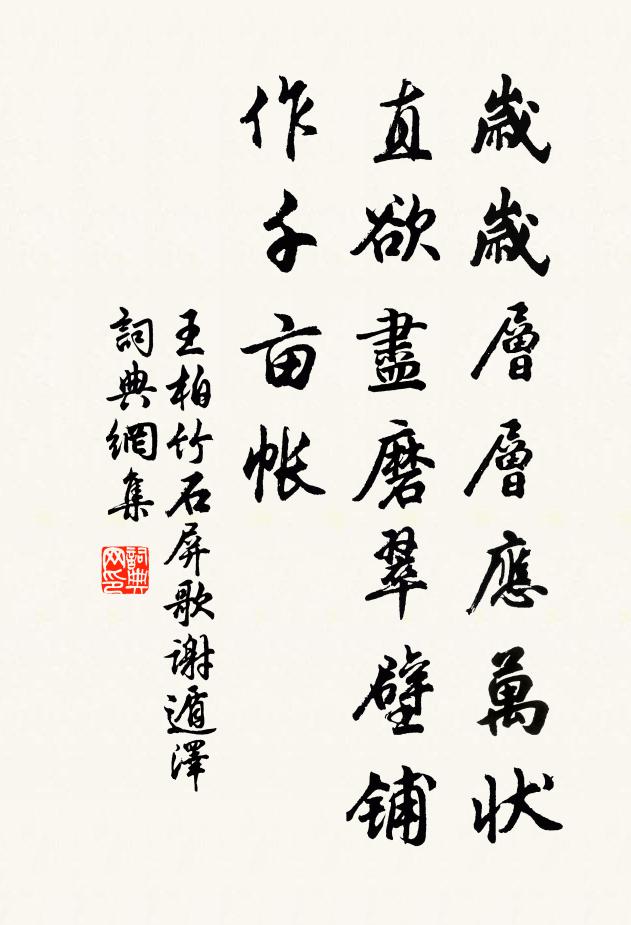 歲歲層層應萬狀
直欲盡磨翠壁铺
作千亩帐
王柏竹石屏歌謝遁澤
詞典網集
詞典
网印